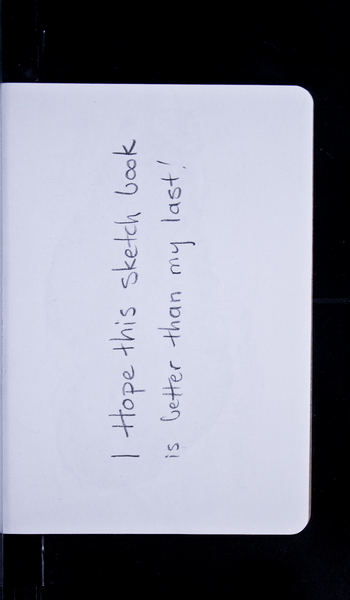 I Hope this sketch book
is better than my last!